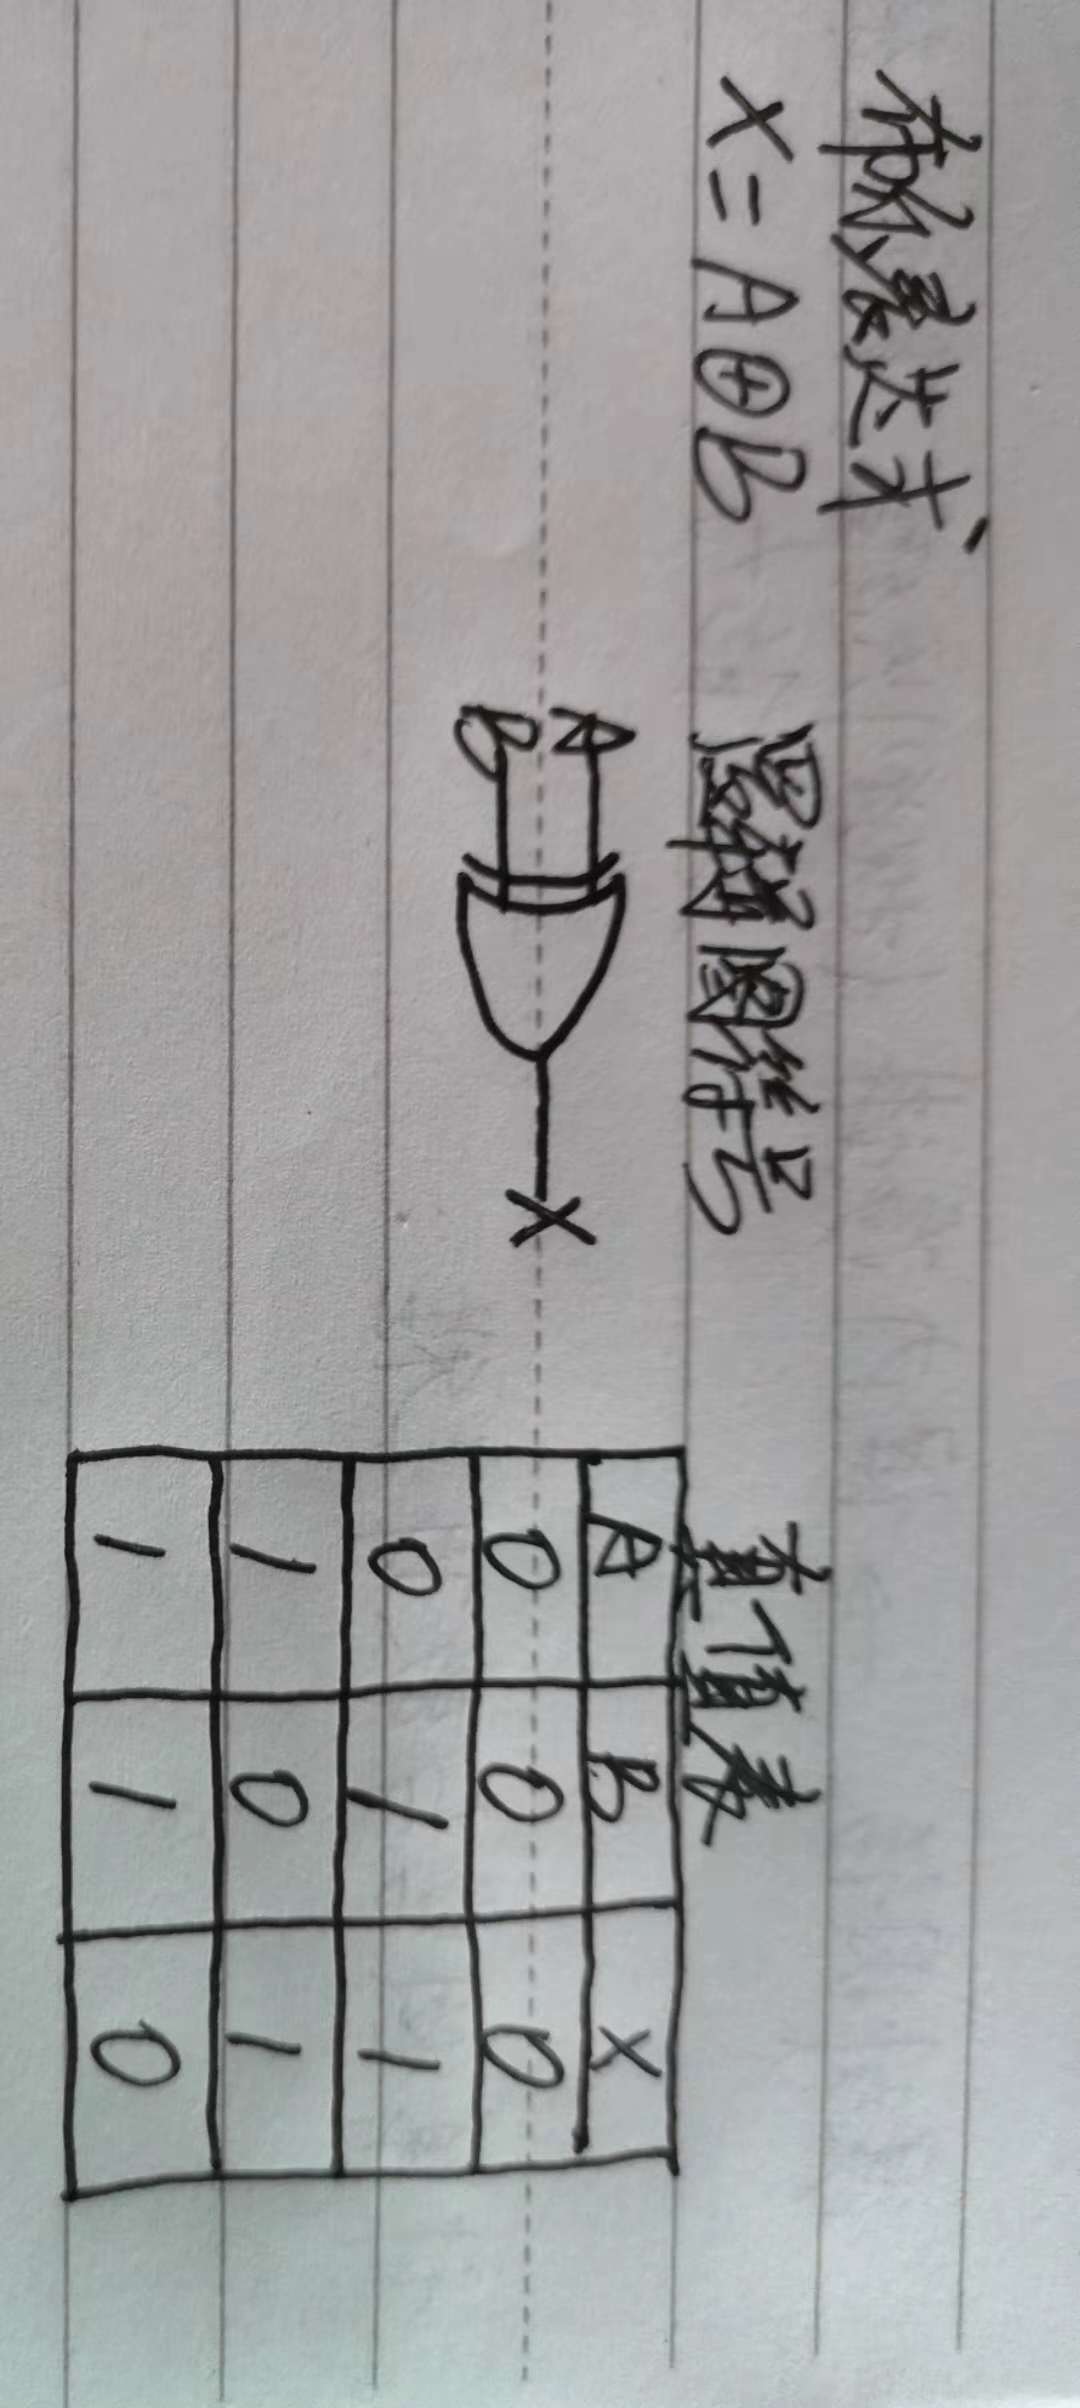 布尔表达式
X=A⊕B
逻辑图符号
A
B
X
真值表
A B X
0 0 0
0 1 1
1 0 1
1 1 0